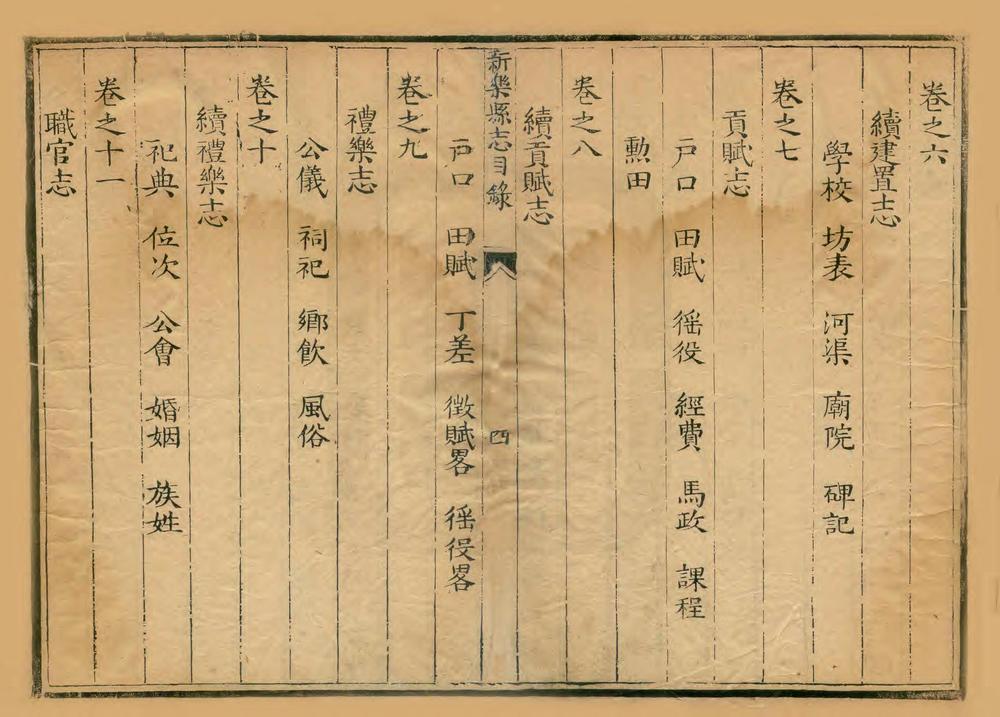 卷之六
續建置志
學校 坊表 河渠 廟院 碑記
卷之七
貢賦志
戶口 田賦 徭役 經費 馬政 課程
勲田
卷之八
續貢賦志
新樂縣志目錄 四
戶口 田賦 丁差 徴賦畧 徭役畧
卷之九
禮樂志
公儀 祠祀 鄉飲 風俗
卷之十
續禮樂志
祀典 位次 公會 婚姻 族姓
卷之十一
職官志